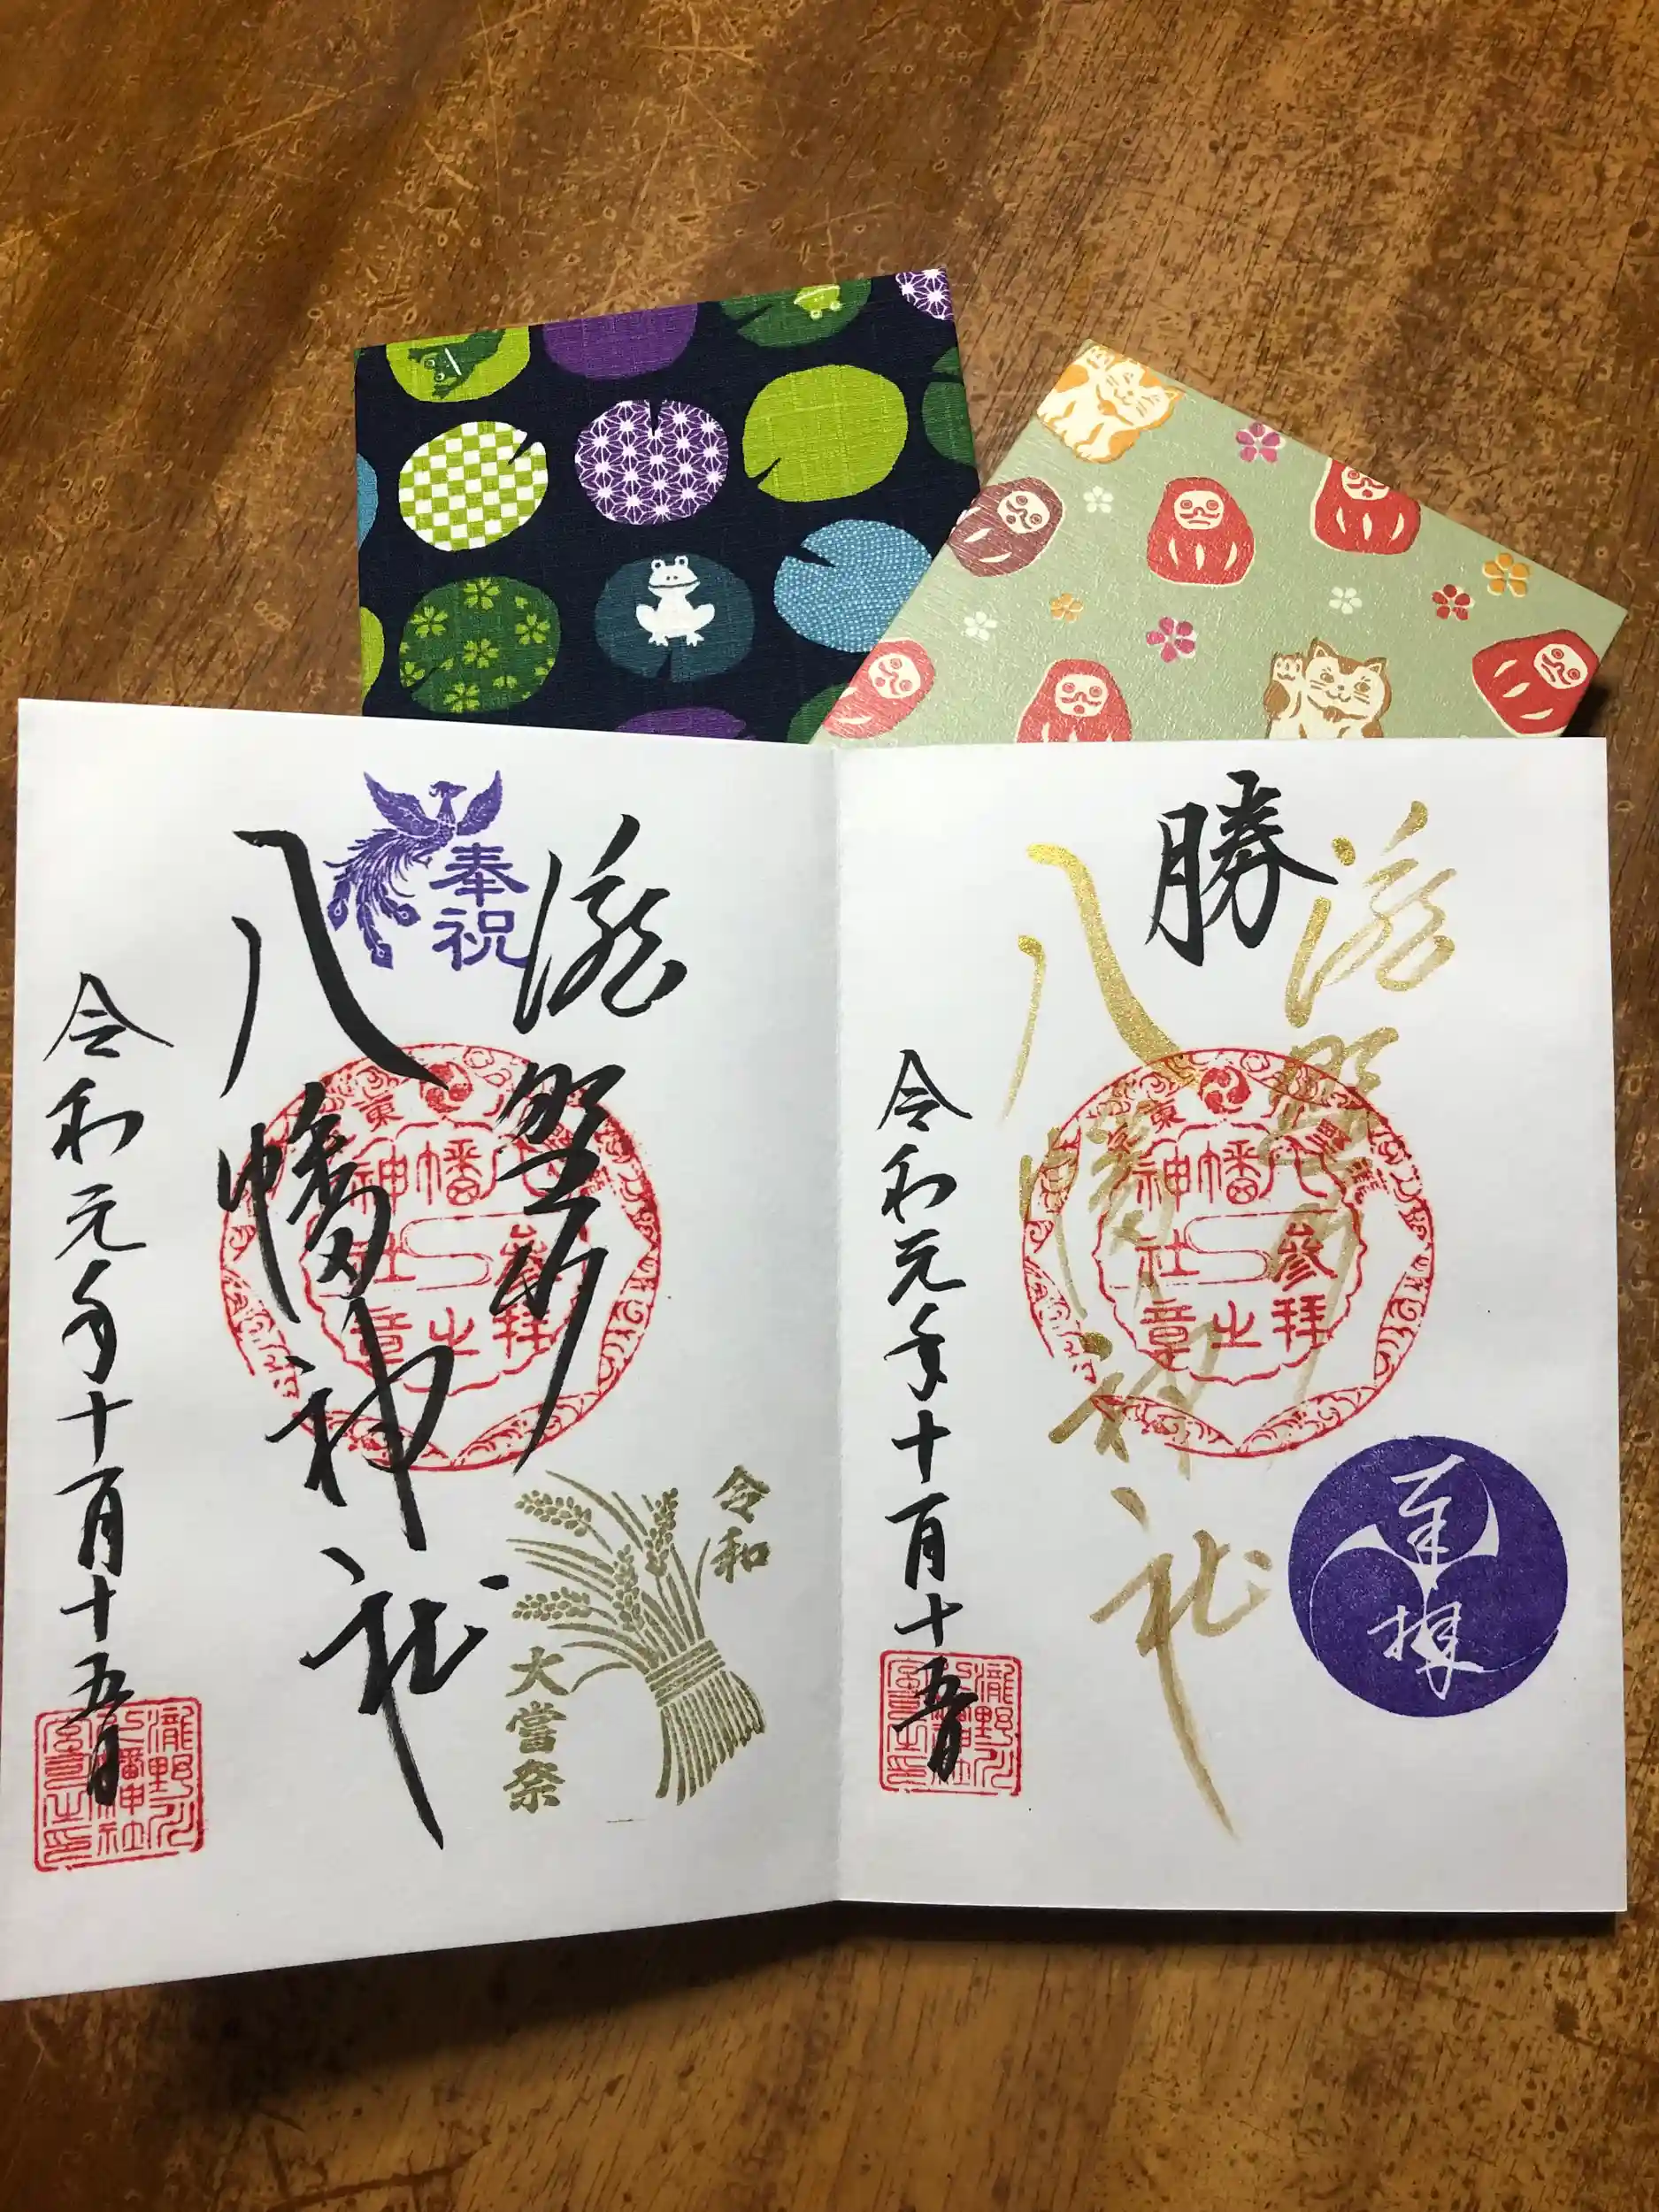 勝
瀧野川
八幡神社
令和元年十一月十五日
東京 瀧野川
八幡神社
参拝之章
奉拝
瀧野川八幡神社宮司之印
奉祝
瀧野川
八幡神社
令和元年十一月十五日
八幡神社
参拝之章
令和
大嘗祭
瀧野川八幡神社宮司之印